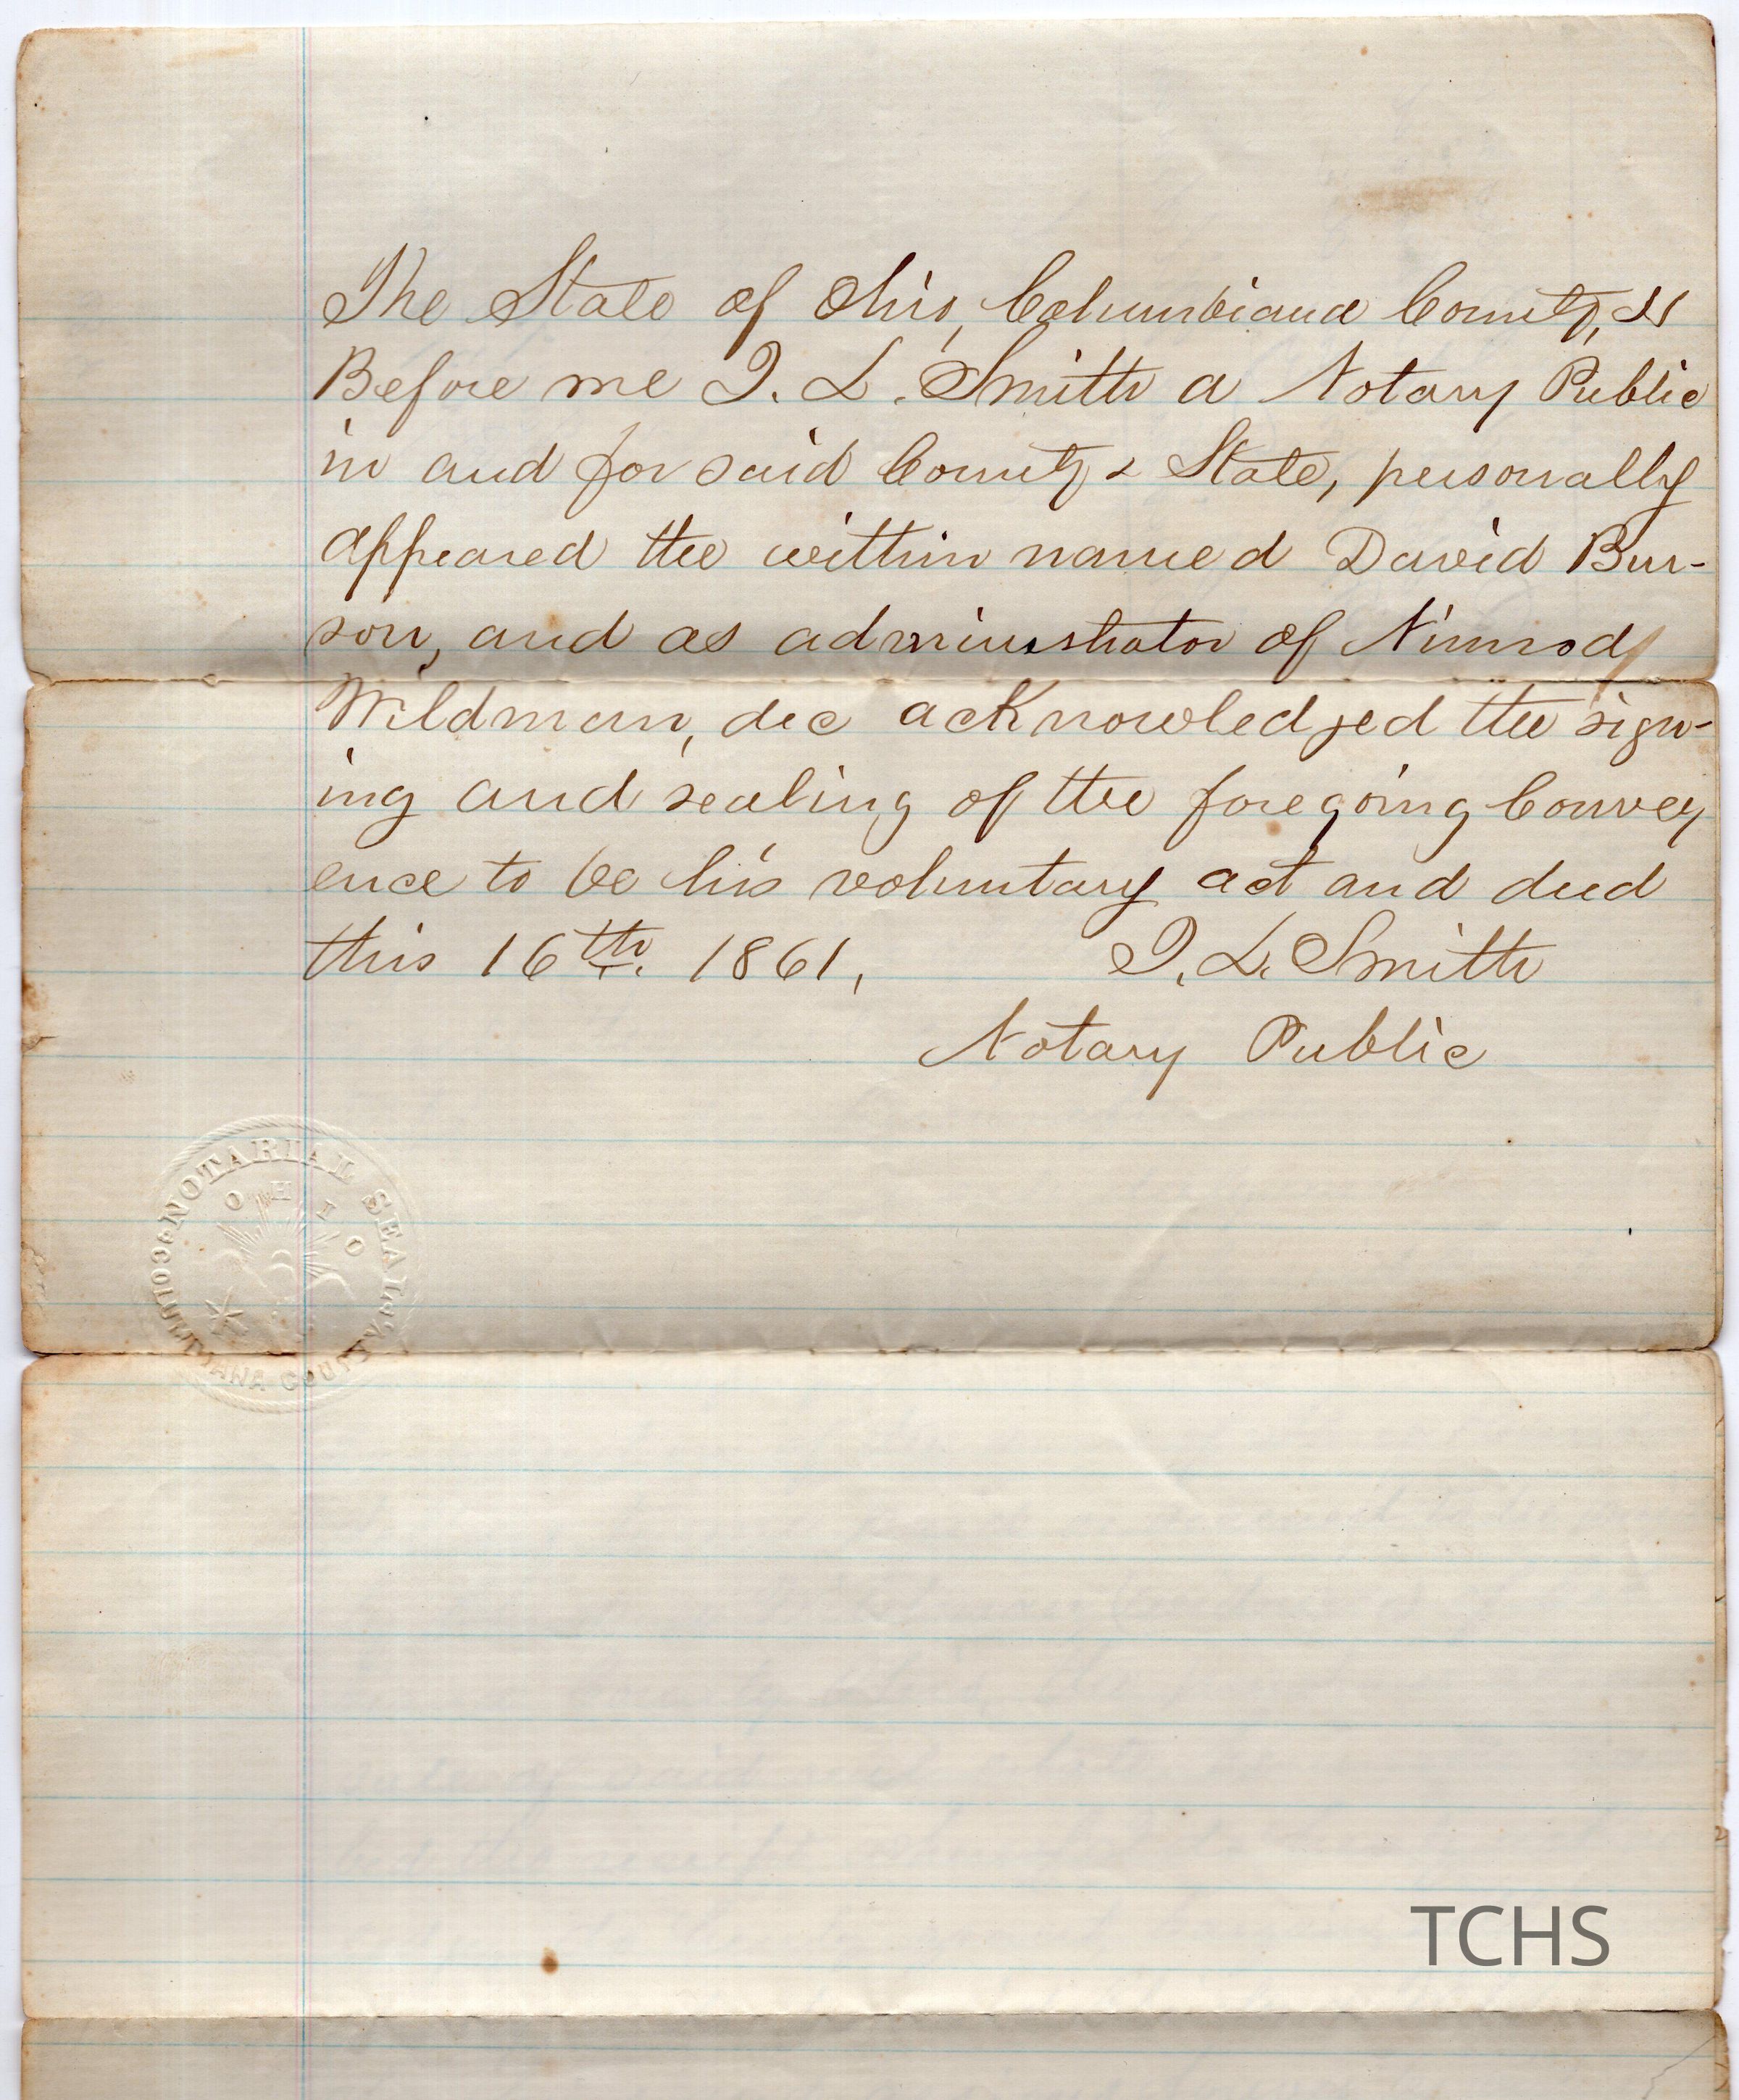 The State of Ohio, Columbiana County, SS
Before me J. L. Smith a Notary Public
in and for said County & State, personally
appeared the within named David Bur-
son, and as administrator of Nimrod
Wildman, dec acknowledged the sign-
ing and sealing of the foregoing Convey
ence to be his voluntary act and deed
this 16th. 1861,
J. L. Smith
Notary Public
NOTARIAL SEAL
OHIO
COLUMBIANA COUNTY
TCHS